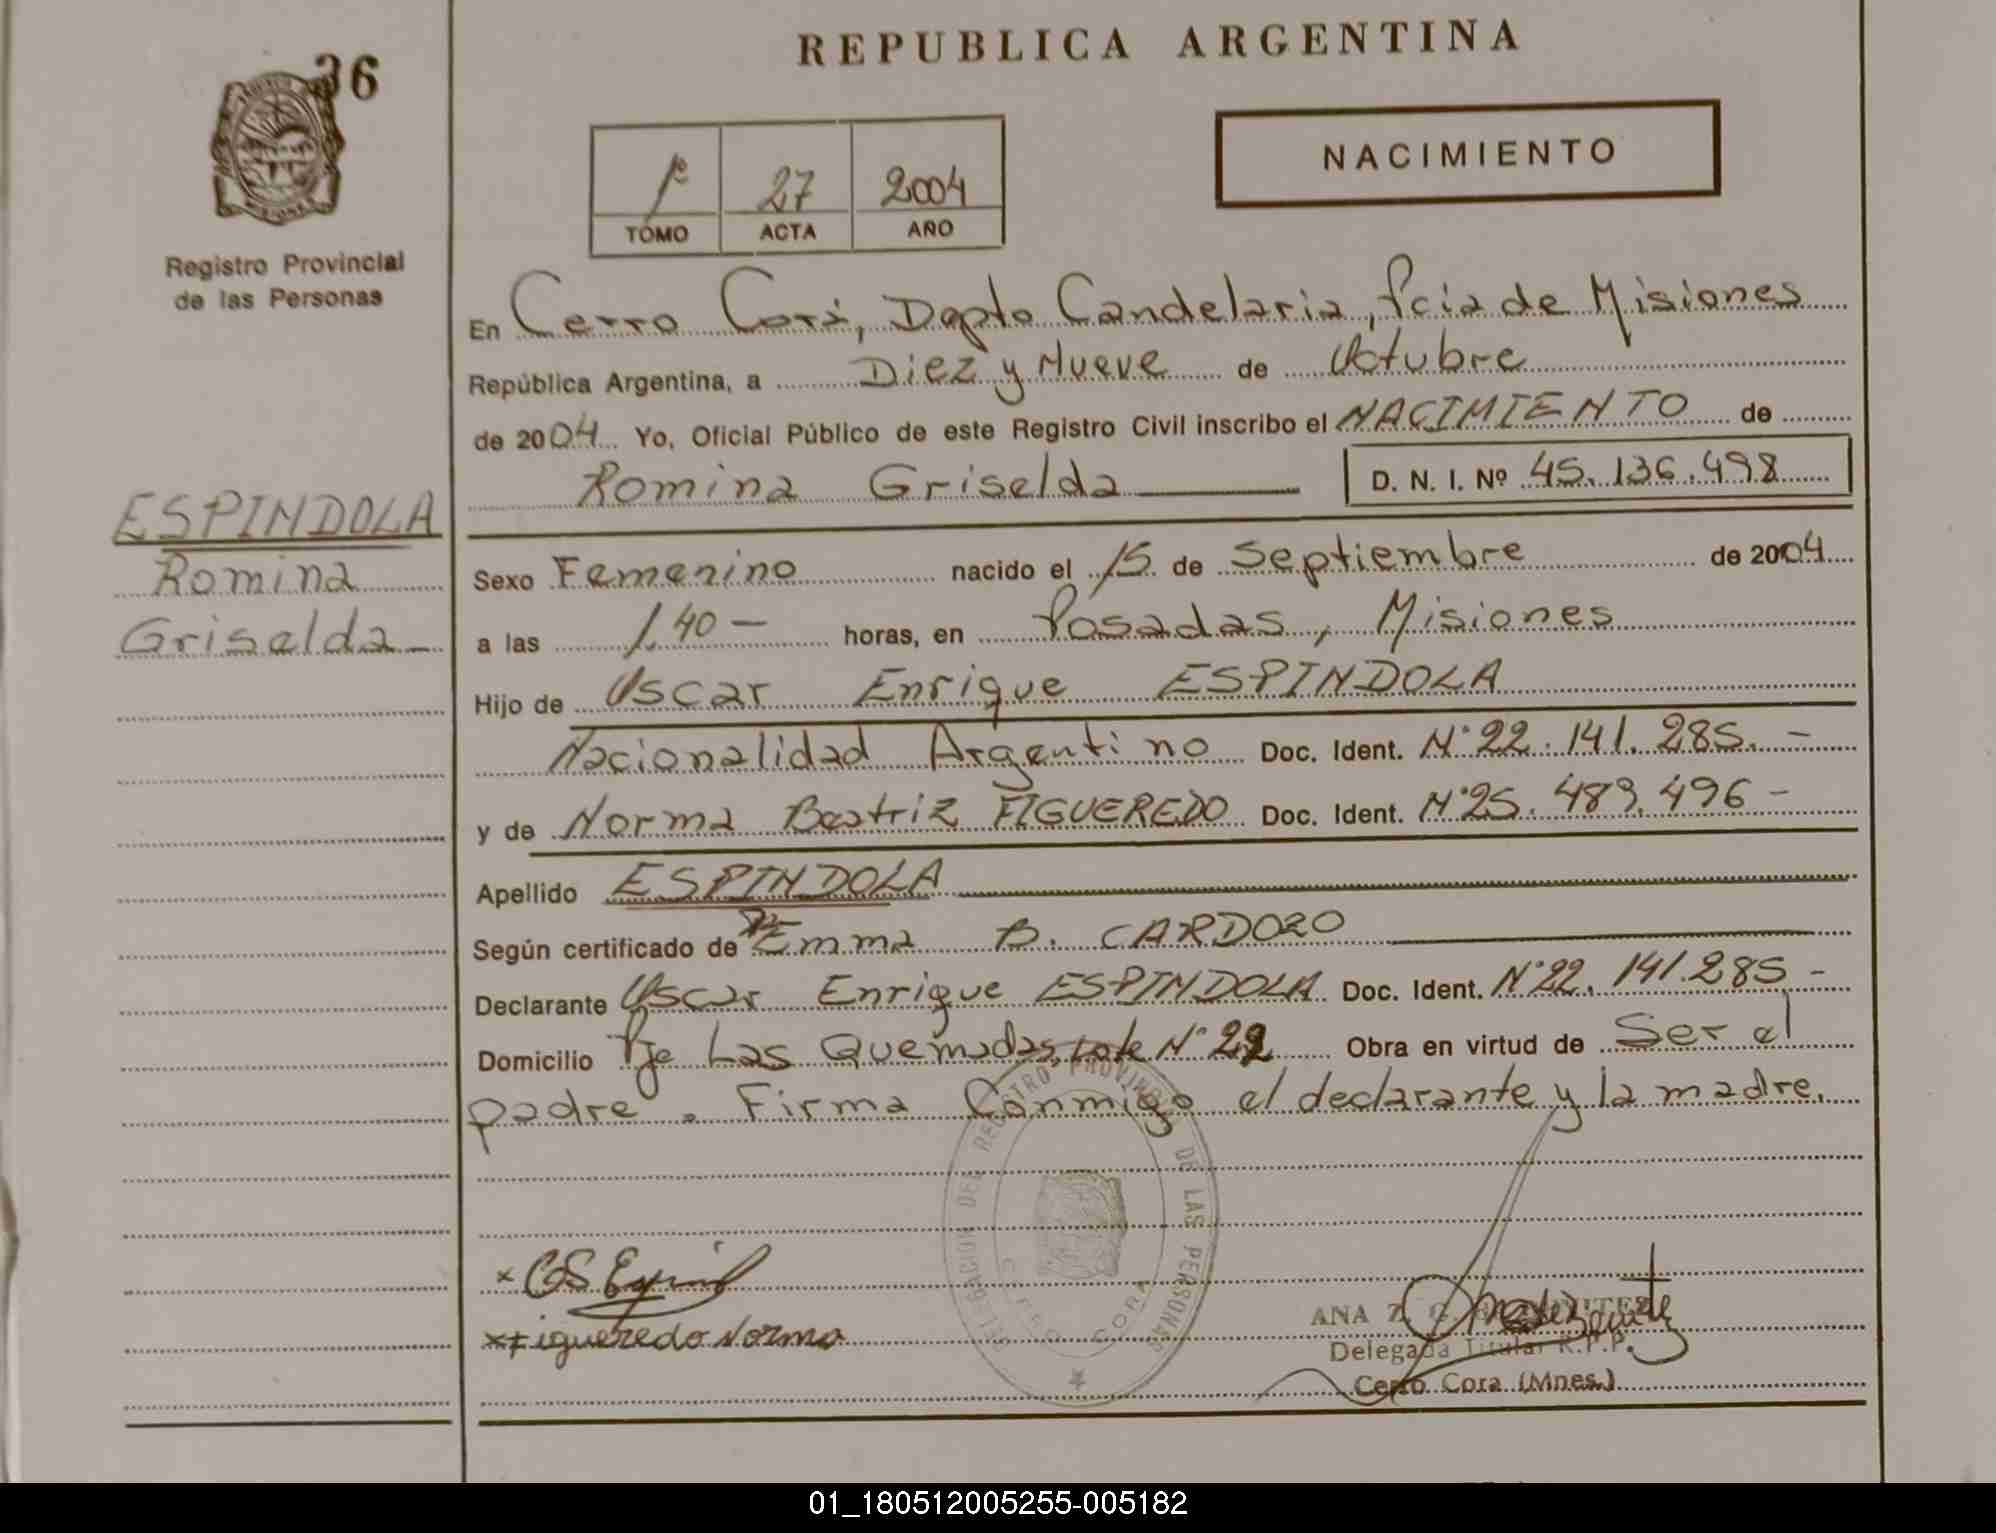 REPUBLICA ARGENTINA
36
NACIMIENTO
1º 27 2004
TOMO ACTA AÑO
Registro Provincial
de las Personas
ESPINDOLA
Romina
Griselda
En Cerro Corá, Dpto Candelaria, Pcia de Misiones
República Argentina, a Diez y Nueve de Octubre
de 2004 Yo, Oficial Público de este Registro Civil inscribo el NACIMIENTO de
Romina Griselda D. N. I. Nº 45.136.498
Sexo Femenino nacido el 15 de Septiembre de 2004
a las 1,40 — horas, en Posadas, Misiones
Hijo de Oscar Enrique ESPINDOLA
Nacionalidad Argentino Doc. Ident. Nº 22.141.285.-
y de Norma Beatriz FIGUEREDO Doc. Ident. Nº 25.489.496 -
Apellido ESPINDOLA
Según certificado de Emma B. CARDOZO
Declarante Oscar Enrique ESPINDOLA Doc. Ident. Nº 22.141.285 -
Domicilio Pje Las Quemadas, Lote Nº 22 Obra en virtud de Ser el
padre. Firma Conmigo el declarante y la madre.
DELEGACION DEL REGISTRO PROVINCIAL DE LAS PERSONAS
CERRO CORA
x Figueredo Norma
ANA Z.
Delegada Titular R.P.P.
Cerro Cora (Mnes.)
01_180512005255-005182